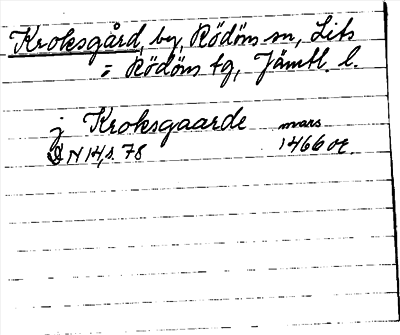 Kroksgård, by, Rödöns sn, Lits
= Rödöns tg, Jämtl. l.
j Kroksgaarde mars
DN 14, s. 78 1466 or.